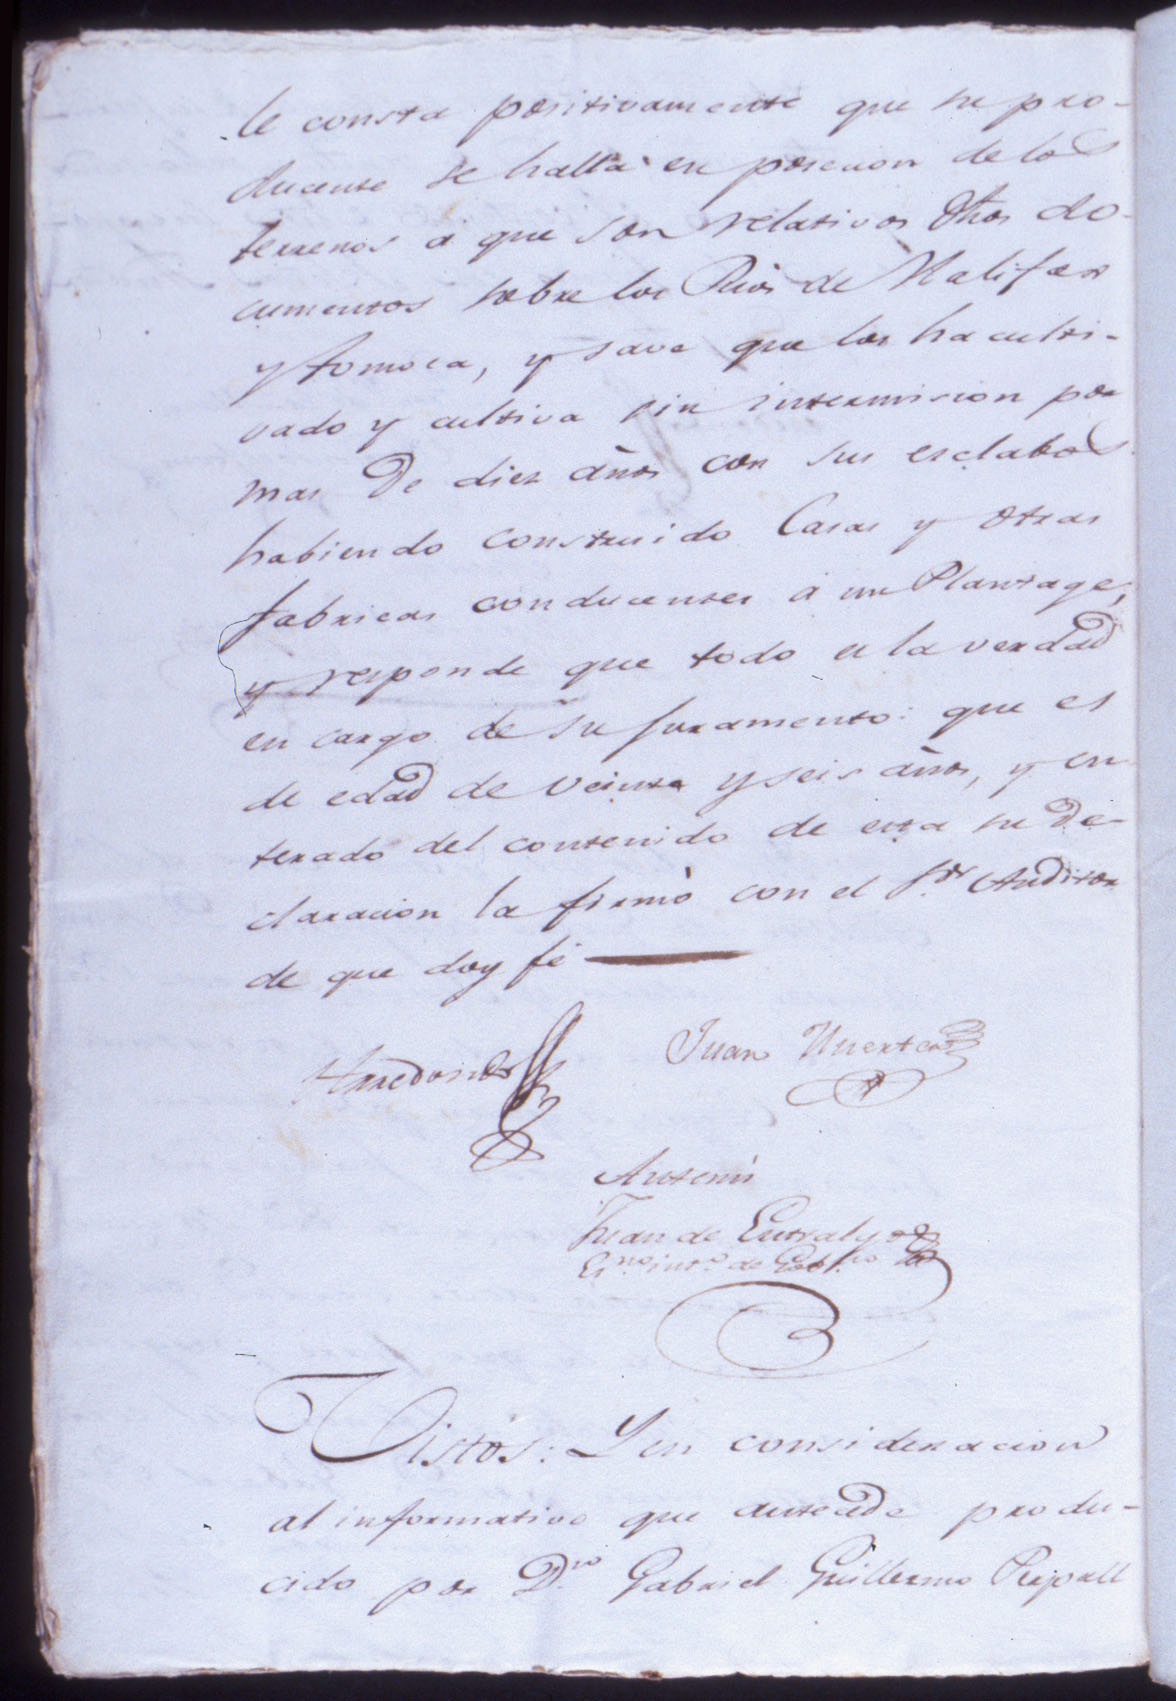 le consta positivamente que su pro-
ducente se halla en posecion de los
terrenos a que son relativos dhos do-
cumentos sobre los Rios de Halifax
y tomoca, y save que los ha culti-
vado y cultiva sin intermision por
mas De diez años con sus esclabos
habiendo construido Casas y otras
fabricas conducentes á un Plantage,
y responde que todo es la verdad
en cargo de su juramento: que es
de edad de veinte y seis años, y en
terado del contenido de esta su De-
claracion la firmó con el Sor. Auditor
de que doy fé
Arredondo
Juan Huertas
Antemi
Juan de Entralgo
Esno. into. de Gobno.
Vistos: Y en consideracion
al informativo que antecede produ-
cido por Dno. Gabriel Guillermo Perpall